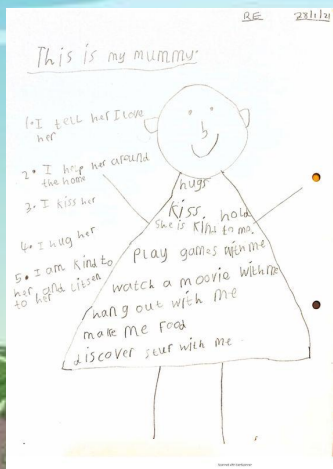 RE 28/1/21
This is my mummy.
1. I tell her I love
her
2. I help her around
the home
3. I kiss her
4. I hug her
5. I am kind to
her and litsen
to her
hugs
kiss. hold
she is kind to me.
Play games with me
watch a moovie with me
hang out with me
make me food
discover stuf with me.